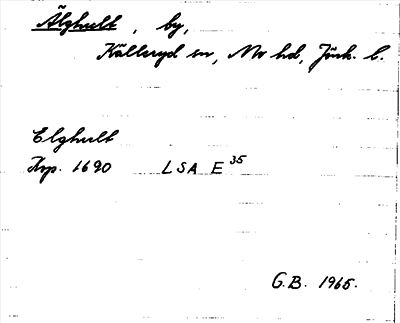 Älghult, by,
Källeryd sn, Mo hd, Jönk. l.
Elghult
Krp. 1690 LSA E 35
G.B. 1965.